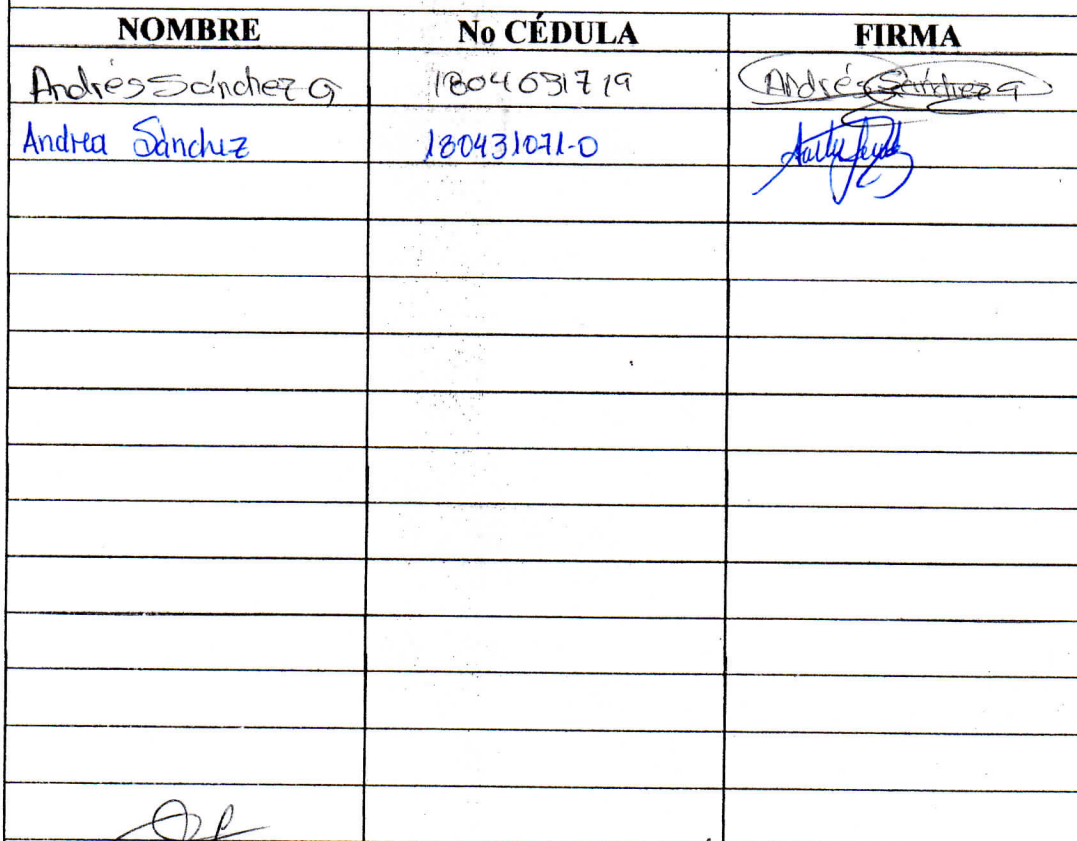 NOMBRE No CÉDULA FIRMA
Andrés Sánchez G 1804631719 Andrés Sánchez G
Andrea Sánchez 180431071-0